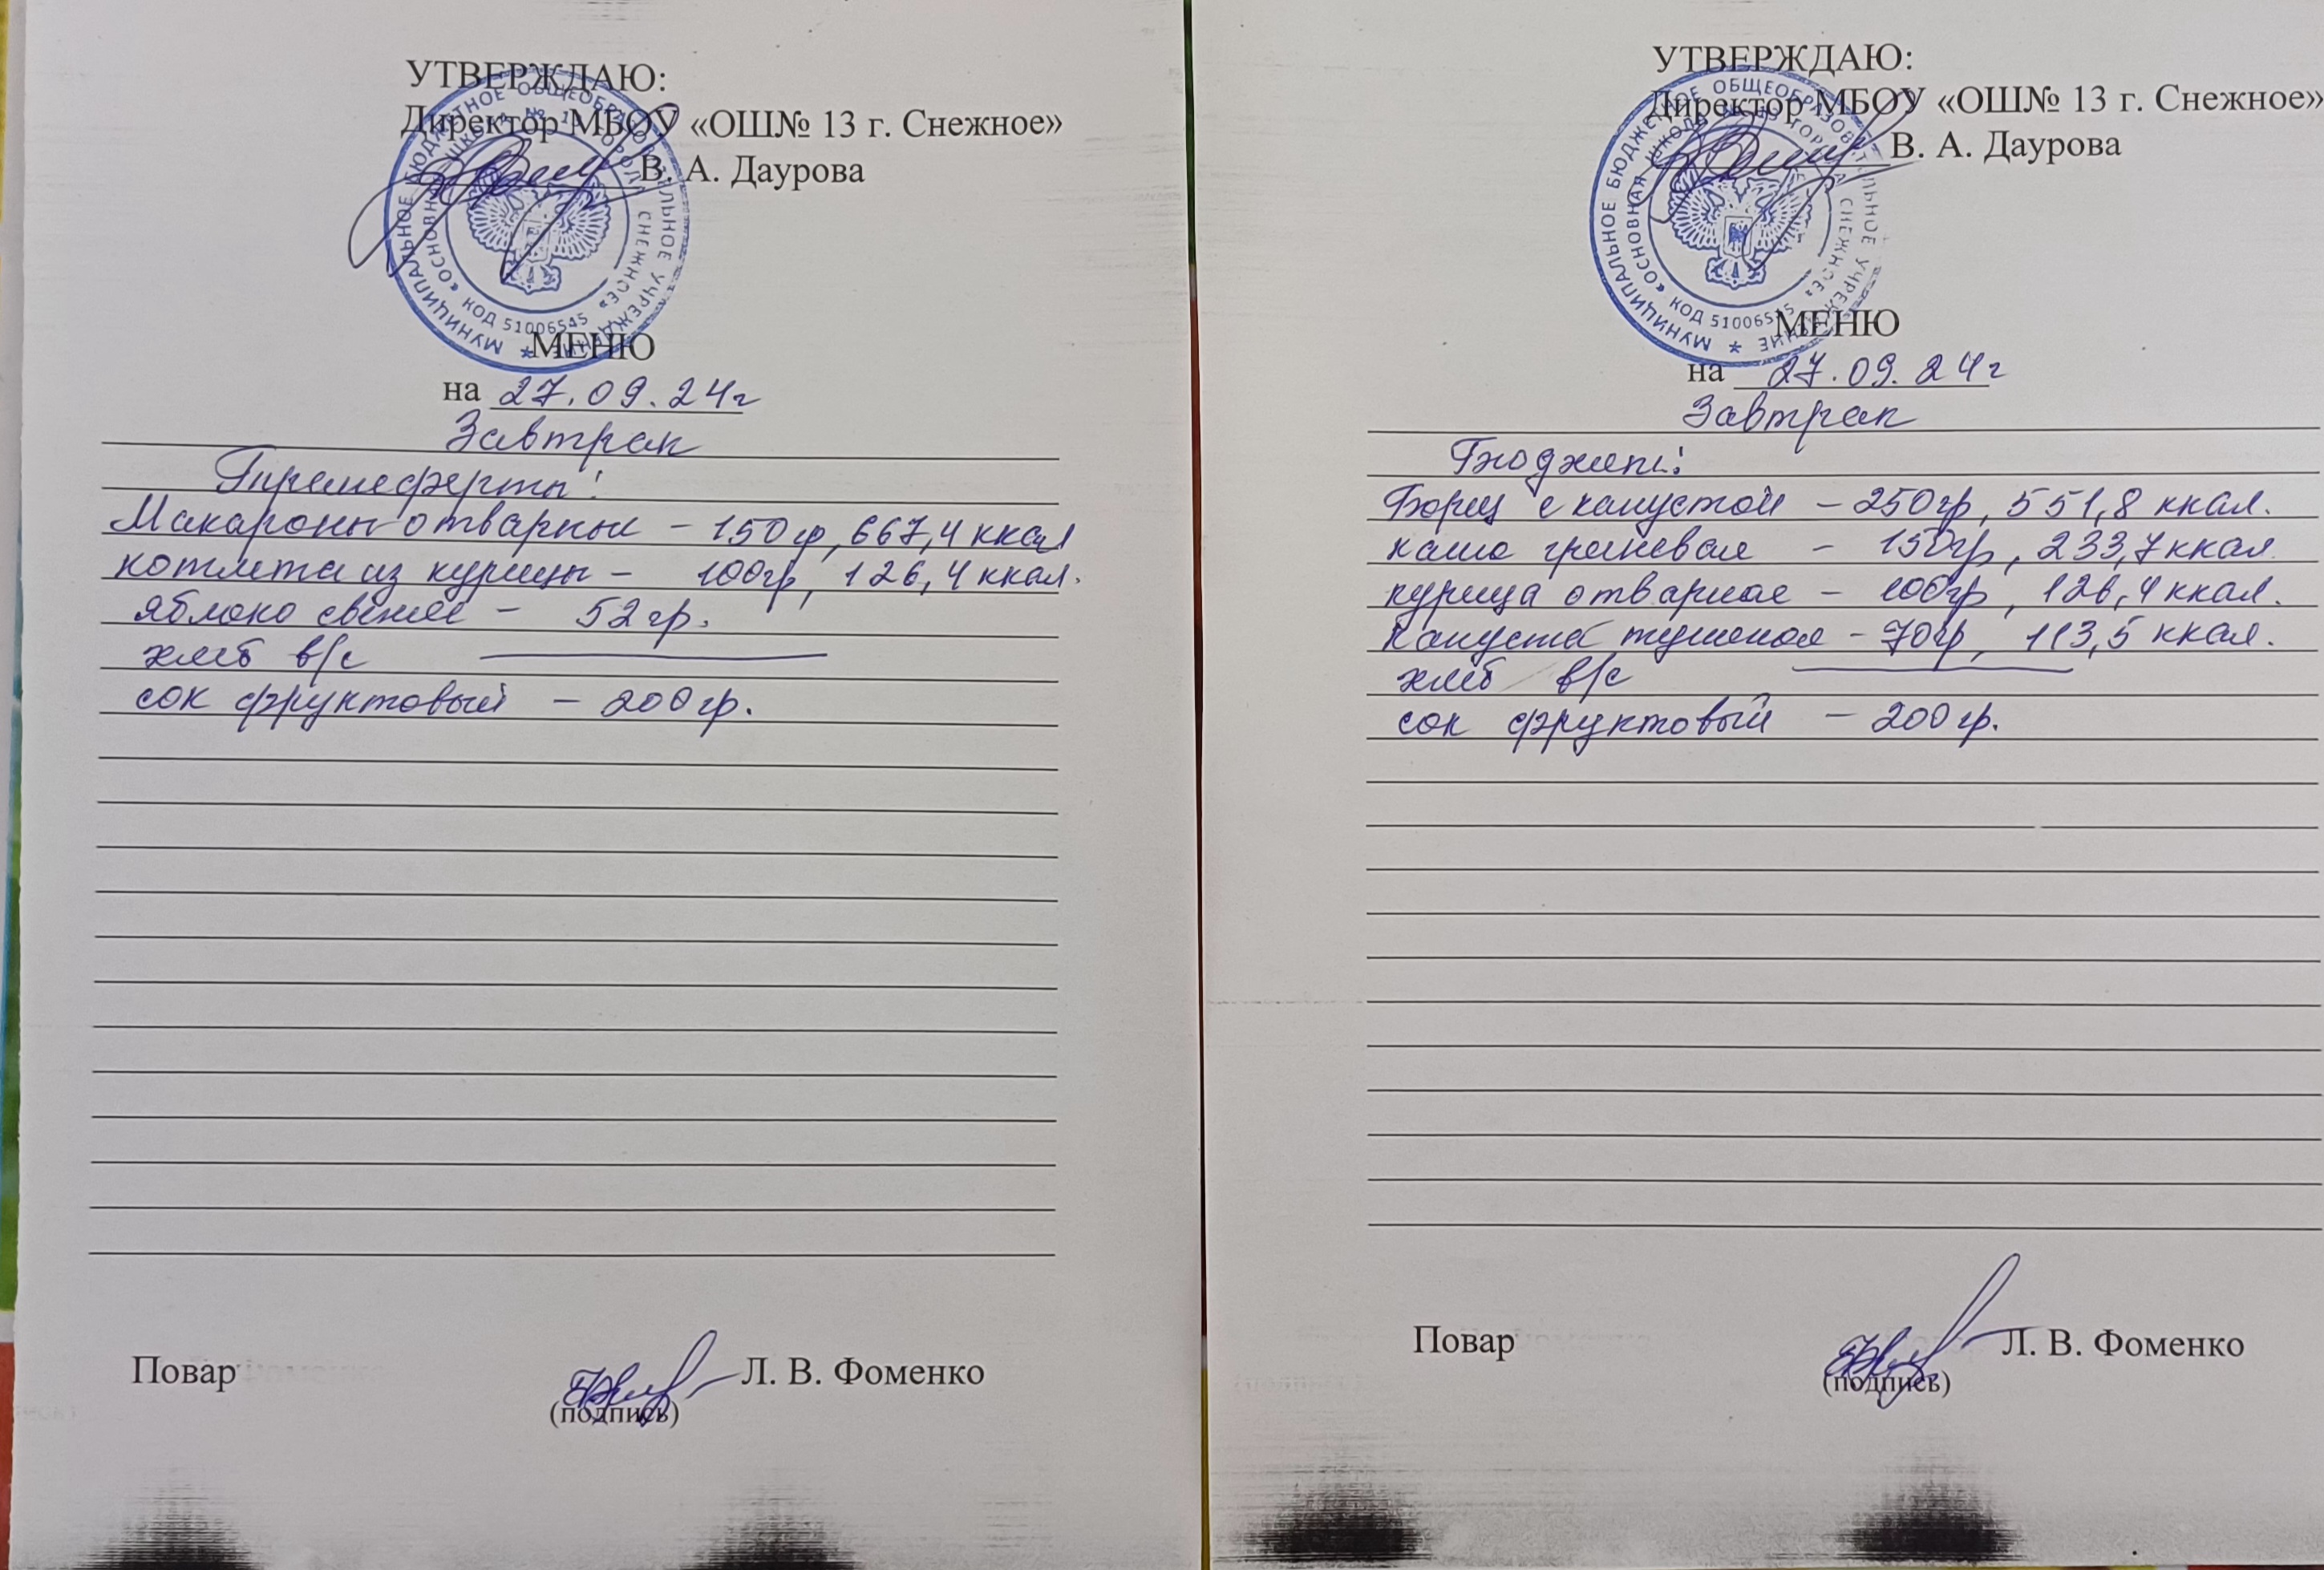 УТВЕРЖДАЮ:
Директор МБОУ «ОШ№ 13 г. Снежное»
В. А. Даурова
МУНИЦИПАЛЬНОЕ БЮДЖЕТНОЕ ОБЩЕОБРАЗОВАТЕЛЬНОЕ УЧРЕЖДЕНИЕ
«ОСНОВНАЯ ШКОЛА № 13 ГОРОДА СНЕЖНОЕ»
КОД 51006545
МЕНЮ
на 27.09.24г
Завтрак
Макароны отварные – 150гр, 667,4 ккал
котлета из курицы – 100гр, 126,4 ккал.
яблоко свежее – 52гр.
хлеб в/с
сок фруктовый – 200гр.
Повар
Л. В. Фоменко
(подпись)
УТВЕРЖДАЮ:
Директор МБОУ «ОШ№ 13 г. Снежное»
В. А. Даурова
МУНИЦИПАЛЬНОЕ БЮДЖЕТНОЕ ОБЩЕОБРАЗОВАТЕЛЬНОЕ УЧРЕЖДЕНИЕ
«ОСНОВНАЯ ШКОЛА № 13 ГОРОДА СНЕЖНОЕ»
КОД 51006545
МЕНЮ
на 27.09.24г
Завтрак
Бюджет:
Борщ с капустой – 250гр, 551,8 ккал.
каша гречневая – 150гр, 233,7 ккал
курица отварная – 100гр, 126,4 ккал.
Капуста тушеная – 70гр, 113,5 ккал.
хлеб в/с
сок фруктовый – 200гр.
Повар
Л. В. Фоменко
(подпись)